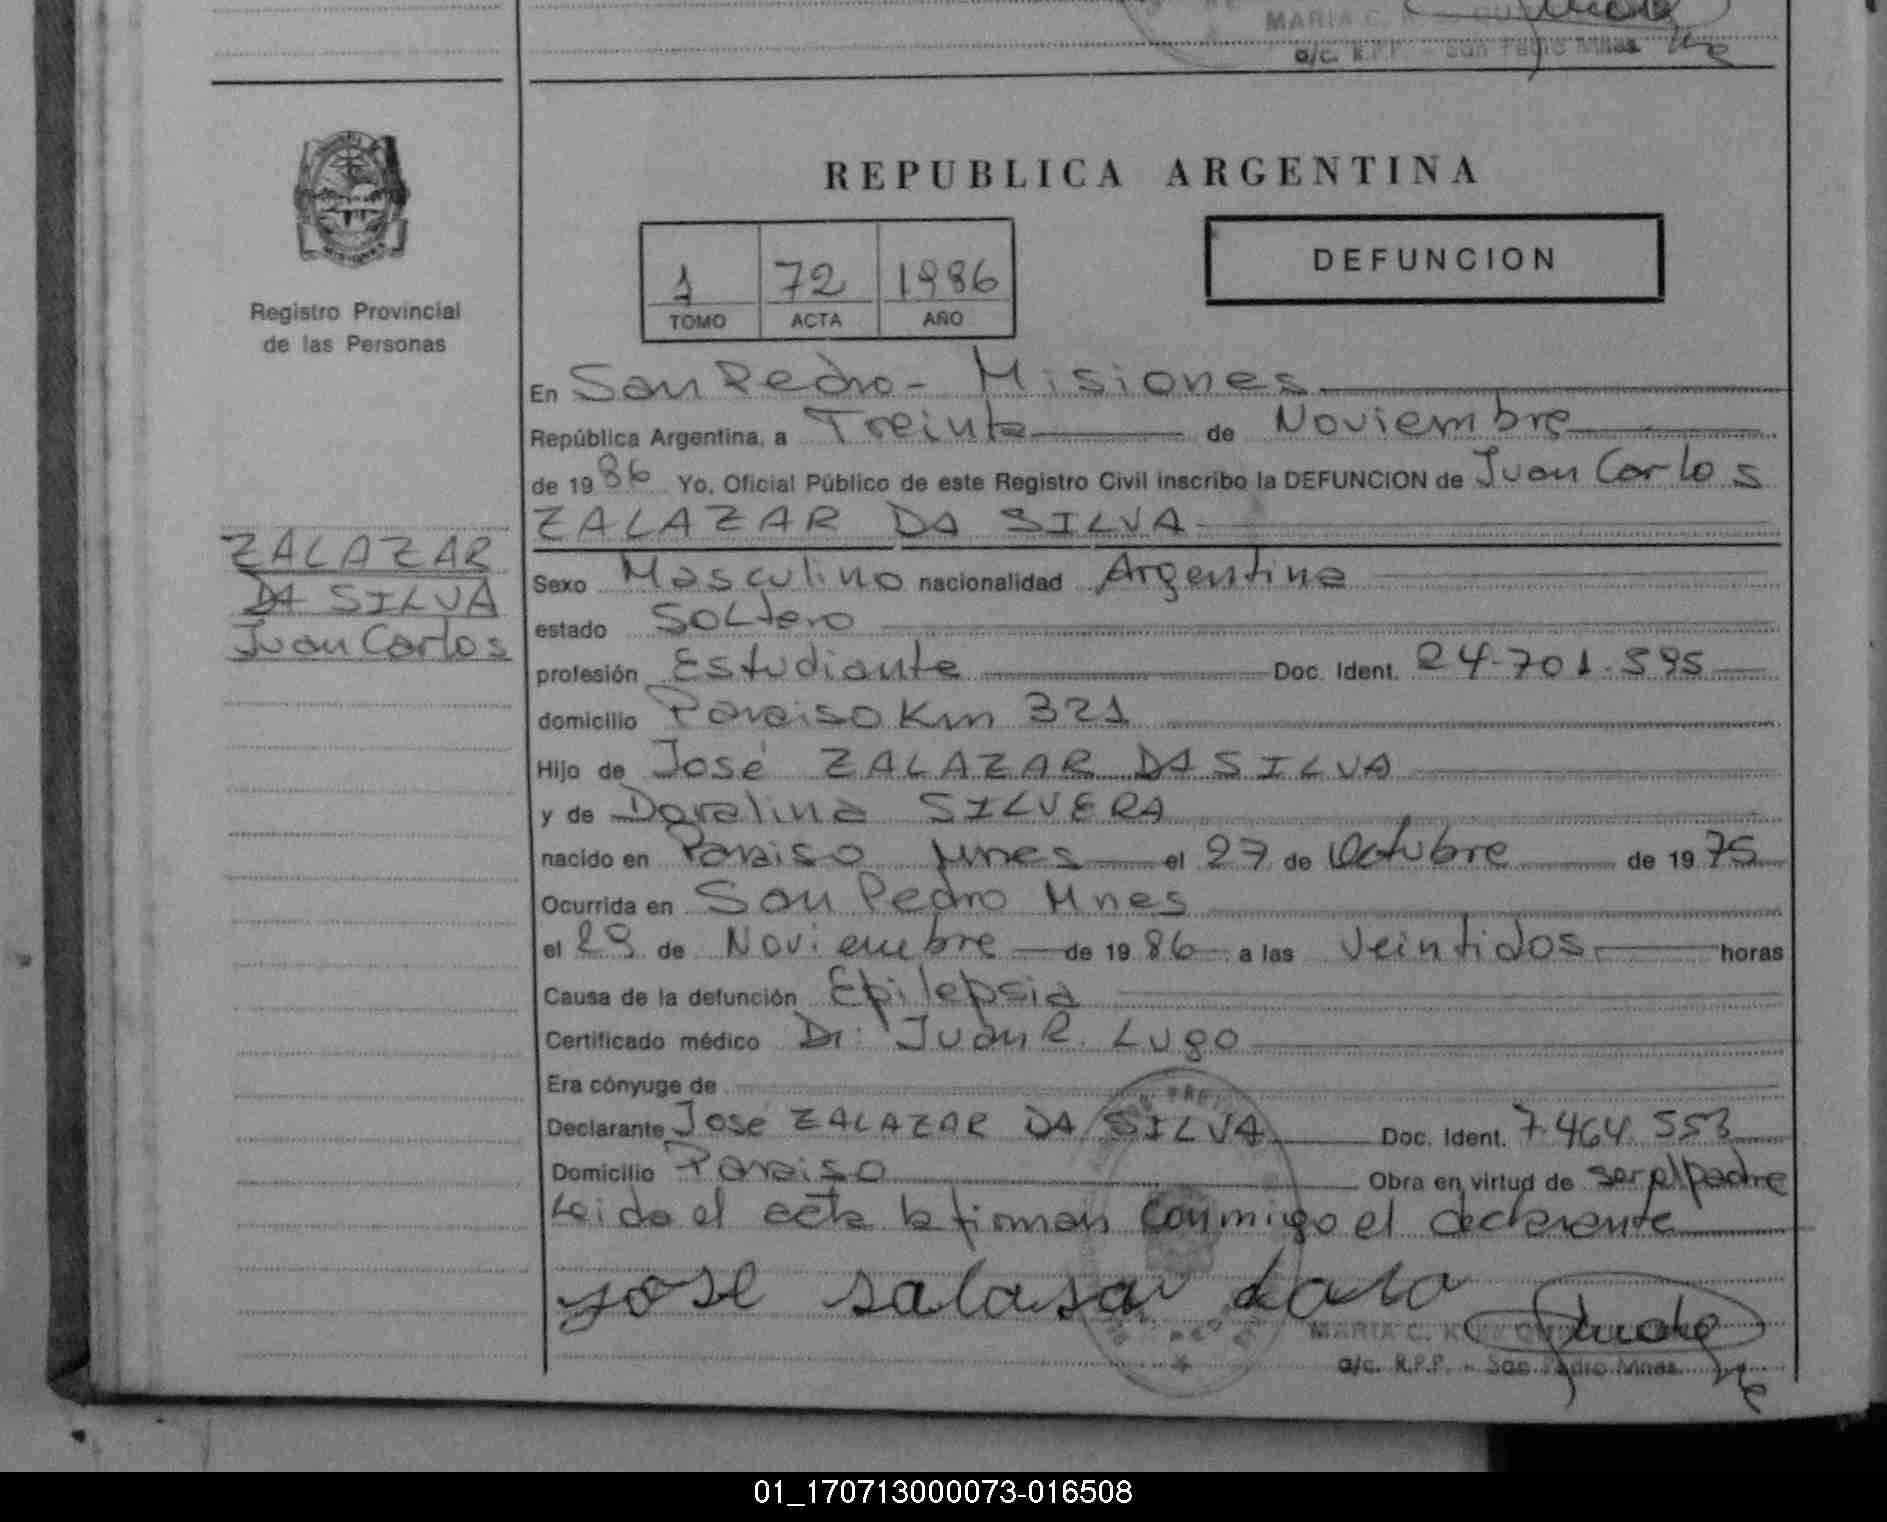 MARIA C.
a/c. R.P.P. - San Pedro Mnas
REPUBLICA ARGENTINA
1 72 1986
TOMO ACTA AÑO
DEFUNCION
Registro Provincial
de las Personas
En San Pedro - Misiones
República Argentina, a Treinta de Noviembre
de 1986 Yo, Oficial Público de este Registro Civil inscribo la DEFUNCION de Juan Carlos
ZALAZAR DA SILVA
ZALAZAR
DA SILVA
Juan Carlos
Sexo Masculino nacionalidad Argentina
estado Soltero
profesión Estudiante Doc. Ident. 24.701.595
domicilio Paraiso Km 321
Hijo de José ZALAZAR DA SILVA
y de Doralina SILVERA
nacido en Paraiso Mnes el 27 de Octubre de 1975
Ocurrida en San Pedro Mnes
el 29 de Noviembre de 1986 a las Veintidos horas
Causa de la defunción Epilepsia
Certificado médico Dr. Juan R. Lugo
Era cónyuge de
Declarante José ZALAZAR DA SILVA Doc. Ident. 7.464.553
Domicilio Paraiso Obra en virtud de ser el padre
Leida el acta la firman conmigo el declarante
yose salasar
MARIA C.
a/c. R.P.P. - San Pedro Mnas
01_170713000073-016508